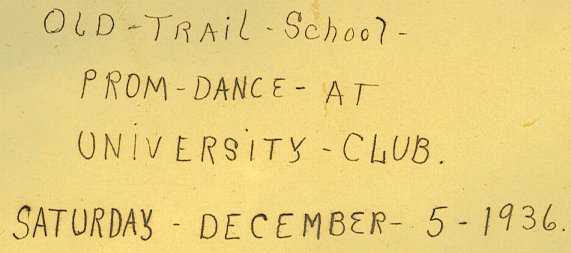 OLD-TRAiL-School-
PROM-DANCE-AT
UNiVERSiTY-CLUB.
SATURDAY - DECEMBER- 5-1936.